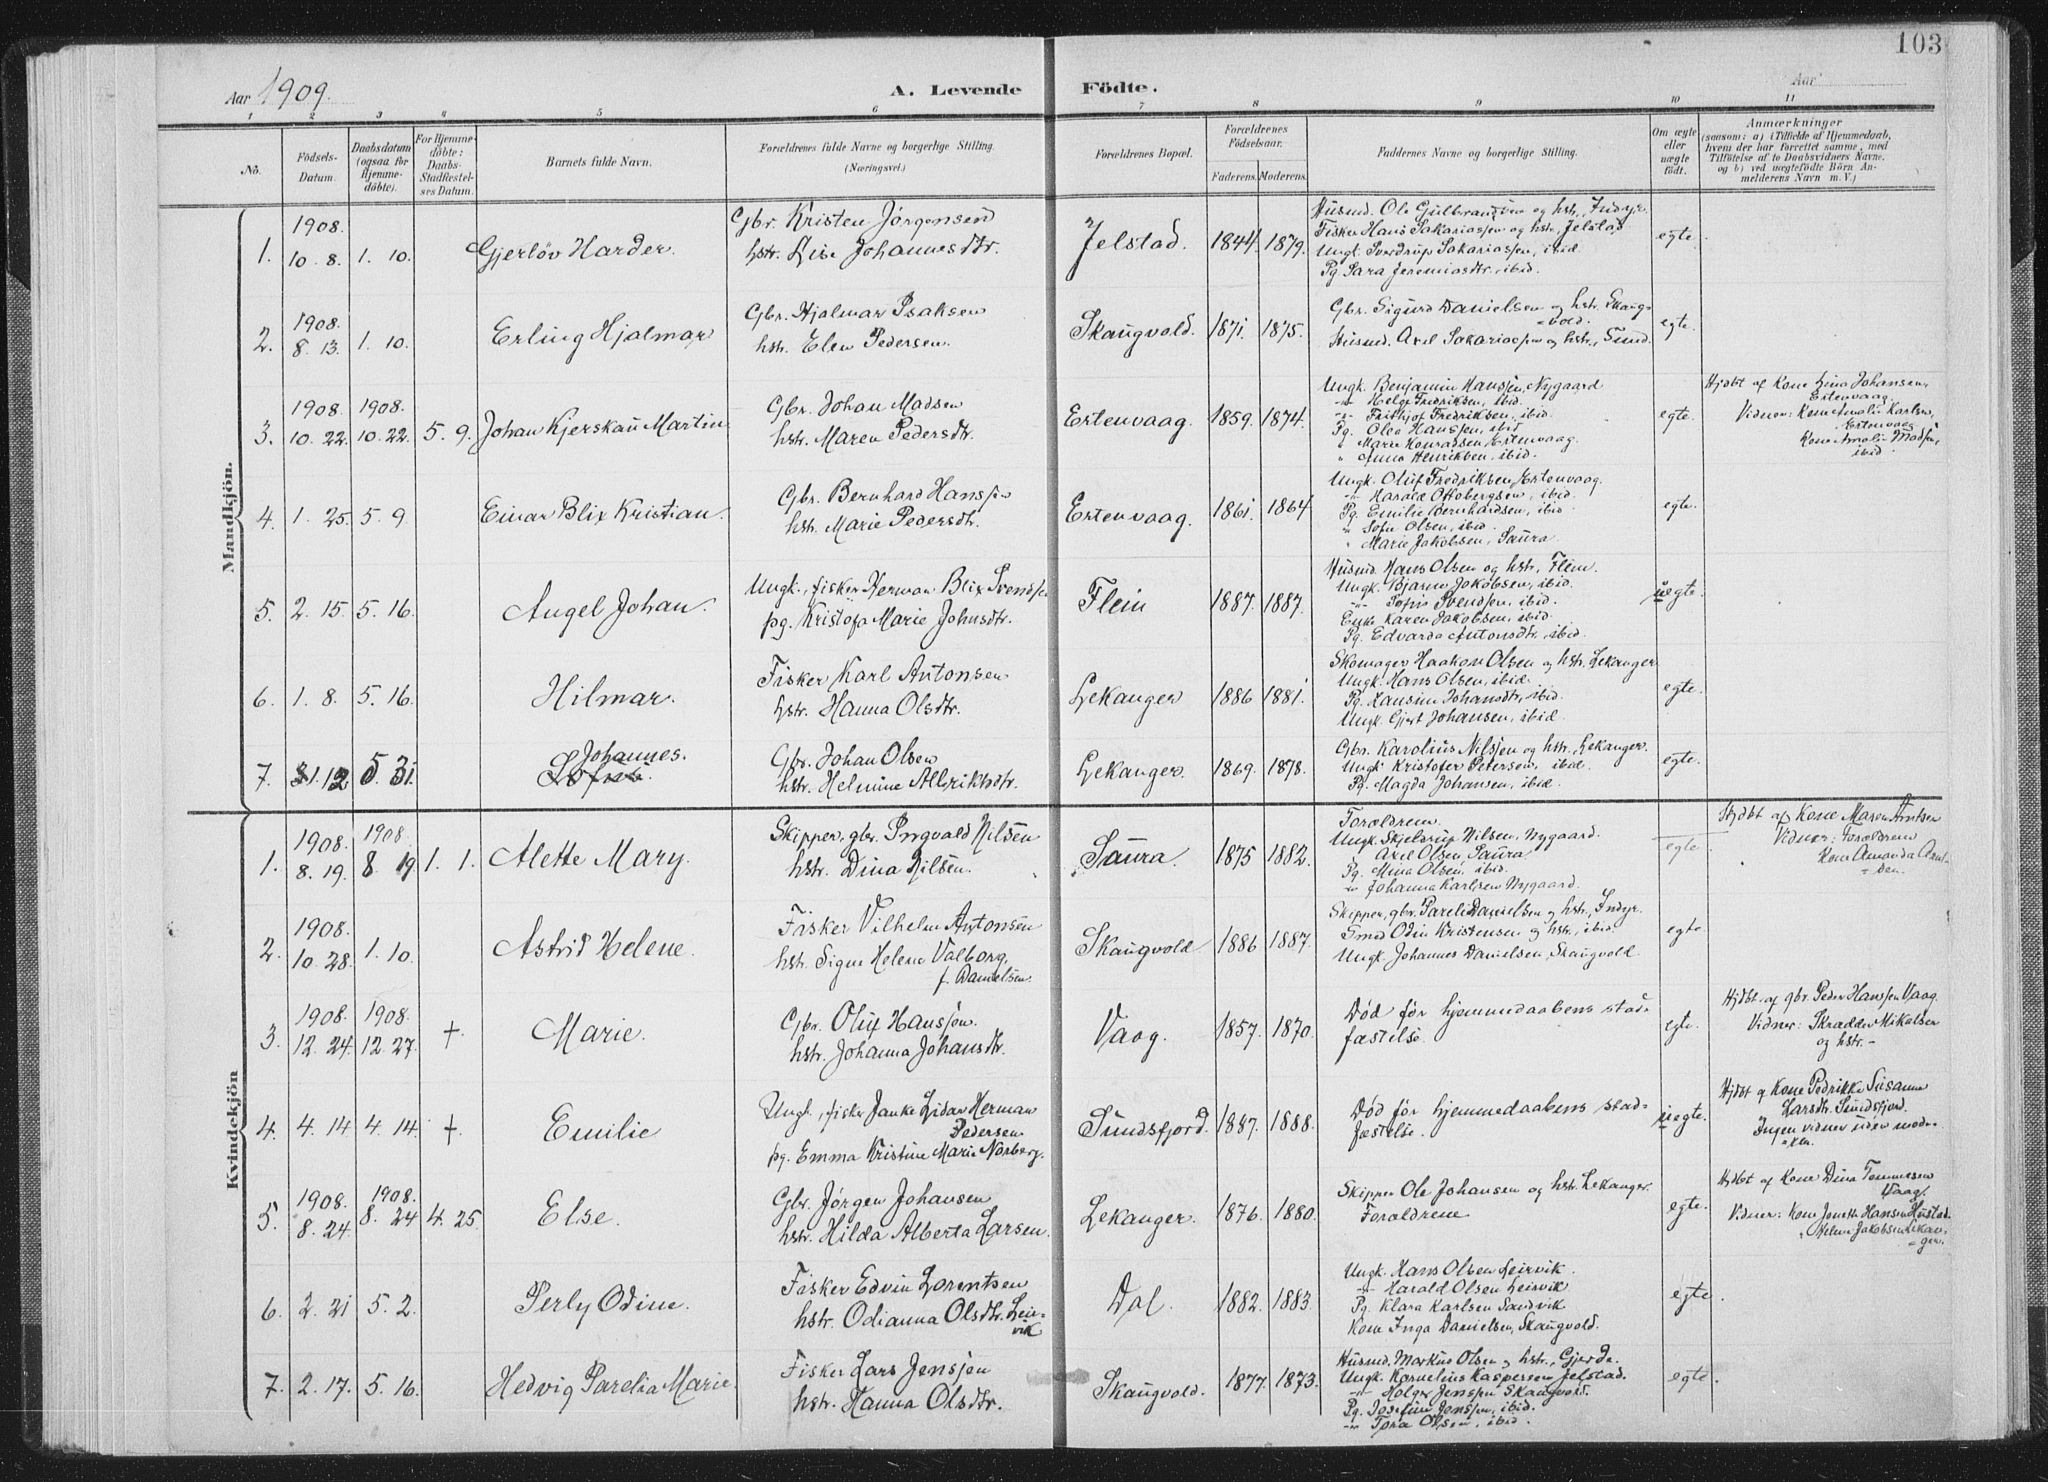 103
Aar 1909.
A. Levende Födte.
Aar
1 2 3 4 5 6 7 8 9 10 11
No.
Födsels-Datum.
Daabsdatum (ogsaa for Hjemme-döbte).
For Hjemme-döbte: Daabs-Stadfæstel-ses Datum.
Barnets fulde Navn.
Forældrenes fulde Navne og borgerlige Stilling. (Næringsvei.)
Forældrenes Bopæl.
Forældrenes Födselsaar.
Faderens. Moderens.
Faddernes Navne og borgerlige Stilling.
Om ægte eller uægte födt.
Anmærkninger
(saasom: a) i Tilfælde af Hjemmedaab,
hvem der har forrettet samme, med
Tilföielse af to Daabsvidners Navne,
og b) ved uægtefödte Börn An-
melderens Navn m. V.)
Mandkjön.
1. 1908. 10. 8. 1. 10. Gjerløv Harder.
Gbr. Kristen Jørgensen
hstr. Lise Johannesdtr.
Jelstad. 1844. 1879.
Husmd. Ole Gulbrandsen og hstr., Indyr
Fisker Hans Sakariasjen og hstr., Jelstad
Ungk. Sverdrup Sakariasjen, ibid.
Pg. Sara Jeremiasdtr., ibid.
egte.
2. 1908. 8. 13. 1. 10. Erling Hjalmar
Gbr. Hjalmar Isaksen
hstr. Elen Pedersen.
Skaugvold. 1871. 1875.
Gbr. Sigurd Danielsen og hstr. Skaug-
vold.
Husmd. Axel Sakariasjen og hstr., Sund.
egte.
3. 1908. 10. 22. 1908. 10. 22. 5. 9. Johan Kjerskau Martin
Gbr. Johan Madsen
hstr. Maren Pedersdtr.
Estenvaag. 1859. 1874.
Ungk. Benjamin Hansjen, Nygaard
-"- Helge Fredriksen, ibid.
-"- Frithjof Fredriksen, ibid.
Pg. Olea Hansjen, ibid
" Marie Konradsen Estenvaag.
" Anna Henriksen, ibid.
egte.
Hjdbt af Kone Lina Johansen,
Estenvaag.
Vidner: Kone Amalie Karlsen,
Estenvaag
Kone Amalie Madsen,
ibid.
4. 1. 25. 5. 9. Einar Blix Kristian.
Gbr. Bernhard Hansjen
hstr. Marie Pedersdtr.
Estenvaag. 1861. 1864
Ungk. Oluf Fredriksen, Estenvaag.
-"- Harald Ottobergsen, ibid.
Pg. Emilie Bernhardsen, ibid.
" Sofie Olsen, ibid.
" Marie Jakobsen, Saura.
egte.
5. 2. 15. 5. 16. Angel Johan.
Ungk., fisker Herman Blix Svendsen
pg. Kristofa Marie Johnsdtr.
Flein 1887. 1887.
Husmd. Hans Olsen og hstr. Flein.
Ungk. Bjarne Jakobsen, ibid.
-"- Tofis Svendsen, ibid.
Enke Karen Jakobsen, ibid.
Pg. Edvarda Antonsdtr., ibid.
uegte.
6. 1. 8. 5. 16. Hilmar.
Fisker Karl Antonsen
hstr. Hanna Olsdtr.
Lekanger 1886 1881.
Skomager Haakon Olsen og hstr. Lekanger
Ungk. Hans Olsen, ibid.
Pg. Hansine Johansdtr., ibid.
Ungk. Gjert Johansen, ibid
egte.
7. 5. 31. Johannes.
Gbr. Johan Olsen
hstr. Helmine Albriktsdtr.
Lekanger. 1869. 1878.
Gbr. Karolius Nilsjen og hstr., Lekanger.
Ungk. Kristofer Petersen, ibid.
Pg. Magda Johansen, ibid.
egte.
Kvindekjön
1. 1908. 8. 19. 1908 8. 19 1. 1. Alette Mary.
Skipper, gbr. Ingvald Nilsen
hstr. Dina Nilsen.
Saura. 1875 1882.
Forældrene.
Ungk. Skjelstrup Nilsen, Nygaard.
Axel Olsen, Saura
Pg. Mina Olsen, ibid.
-"- Johanna Karlsen Nygaard.
egte
Hjdbt af Kone Maren Arntsen
Vidner: Forældrene
Kone Amanda Arnt-
sen.
2. 1908. 10. 28. 1. 10. Astrid Helene.
Fisker Vilhelm Antonsen
hstr. Signe Helene Valborg,
f. Danielsen.
Skaugvold 1886 1887.
Skipper, gbr. Pareli Danielsen og hstr., Indyr.
Smed Odin Kristensen og hstr., ibid.
Ungk. Johannes Danielsen, Skaugvold.
egte
3. 1908. 12. 24. 1908. 12. 27. † Marie.
Gbr. Oluf Hansjen.
hstr. Johanna Johansdtr.
Vaag. 1857. 1870.
Død før hjemmedaabens stad-
fæstelse.
egte.
Hjdbt. af gbr. Peder Hansjen Vaag.
Vidner: Skrædder Mikalsen
og hstr.-
4. 4. 14. 4. 14. † Emilie
Ungk., fisker Janke Lidar Herman
Pedersen
pg. Emma Kristine Marie Norberg.
Sundsfjord. 1887. 1888.
Død før hjemmedaabens stad-
fæstelse.
uegte.
Hjdbt af Kone Pedrikke Susanna
Larsdtr. Sundsfjord.
Ingen vidner uden mode-
ren.
5. 1908. 8. 24. 1908. 8. 24 4. 25. Else.
Gbr. Jørgen Johansen
hstr. Hilda Alberta Larsen.
Lekanger. 1876. 1880.
Skipper Ole Johansen og hstr. Lekanger.
Forældrene
egte.
Hjdbt af Kone Dina Tommesen
Vaag.
Vidner: Kone Hansen Hustad.
" Helene Jakobsen Lekan-
ger.
6. 2. 21 5. 2. Perly Odine.
Fisker Edvin Lorentsen
hstr. Odianna Olsdtr. Leir-
vik
Dal. 1882. 1883.
Ungk. Hans Olsen Leirvik.
-"- Harald Olsen Leirvik
Pg. Klara Karlsen Sandvik
Kone Inga Danielsen, Skaugvold.
egte.
7. 2. 17. 5. 16. Hedvig Parelia Marie.
Fisker Lars Jensjen
hstr. Hanna Olsdtr.
Skaugvold. 1877. 1873.
Husmd. Markus Olsen og hstr., Gjerde.
Ungk. Kornelius Kaspersen Jelstad.
-"- Holger Jensjen Skaugvold.
Pg. Josefine Jensjen, ibid.
-"- Tora Olsen, ibid.
egte.